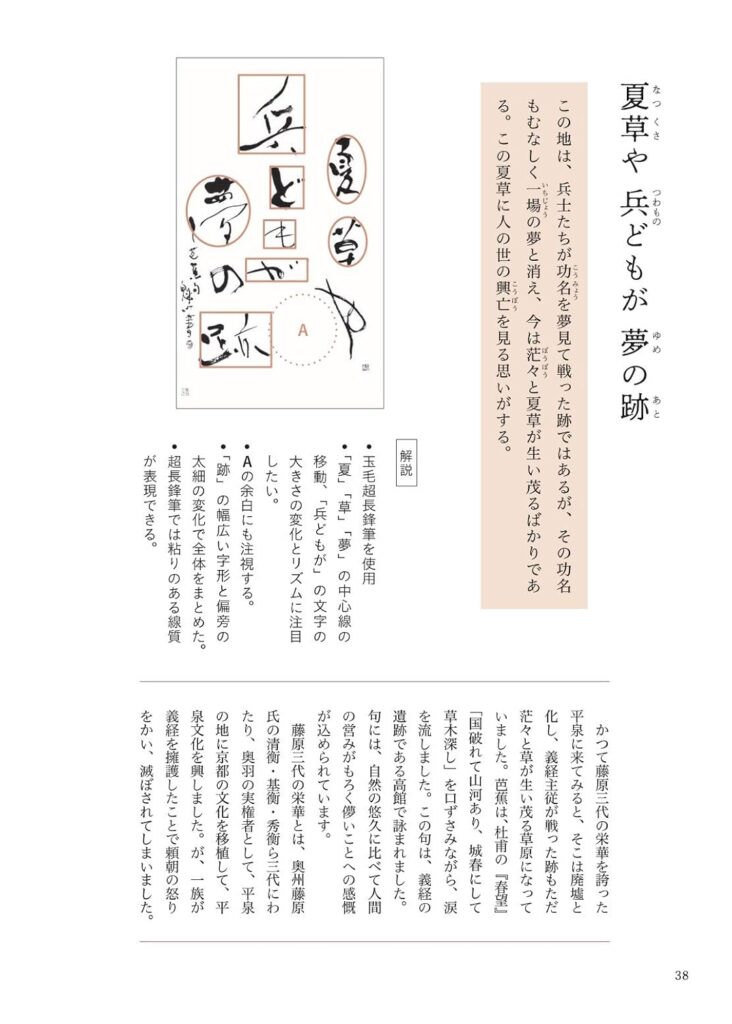 夏草や 兵どもが 夢の跡
なつくさ
つわもの
ゆめ
あと
この地は、兵士たちが功名を夢見て戦った跡ではあるが、その功名
こうみょう
もむなしく一場の夢と消え、今は茫々と夏草が生い茂るばかりであ
いちじょう
ぼうぼう
る。この夏草に人の世の興亡を見る思いがする。
こうぼう
夏草や
兵どもが
夢の跡
芭蕉句
A
解説
• 玉毛超長鋒筆を使用
• 「夏」「草」「夢」の中心線の
移動、「兵どもが」の文字の
大きさの変化とリズムに注目
したい。
• Aの余白にも注視する。
• 「跡」の幅広い字形と偏旁の
太細の変化で全体をまとめた。
• 超長鋒筆では粘りのある線質
が表現できる。
かつて藤原三代の栄華を誇った
平泉に来てみると、そこは廃墟と
化し、義経主従が戦った跡もただ
茫々と草が生い茂る草原になって
いました。芭蕉は、杜甫の『春望』
「国破れて山河あり、城春にして
草木深し」を口ずさみながら、涙
を流しました。この句は、義経の
遺跡である高館で詠まれました。
句には、自然の悠久に比べて人間
の営みがもろく儚いことへの感慨
が込められています。
藤原三代の栄華とは、奥州藤原
氏の清衡・基衡・秀衡ら三代にわ
たり、奥羽の実権者として、平泉
の地に京都の文化を移植して、平
泉文化を興しました。が、一族が
義経を擁護したことで頼朝の怒り
をかい、滅ぼされてしまいました。
38